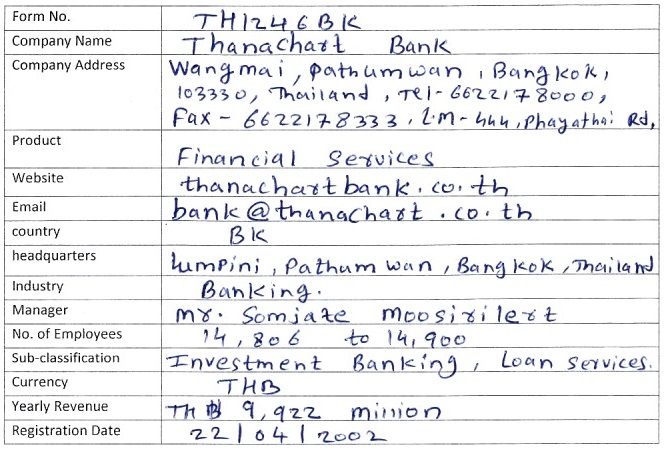 Form No. TH1246BK
Company Name Thanachart Bank
Company Address Wangmai, Pathumwan, Bangkok,
103330, Thailand, Tel-6622178000,
Fax - 6622178333, L.M-444, Phayathai Rd,
Product Financial Services
Website thanachartbank.co.th
Email bank@thanachart.co.th
country BK
headquarters Lumpini, Pathum wan, Bangkok, Thailand
Industry Banking.
Manager Mr. Somjate Moosirilert
No. of Employees 14,806 to 14,900
Sub-classification Investment Banking, Loan Services.
Currency THB
Yearly Revenue TH฿ 9,922 million
Registration Date 22/04/2002